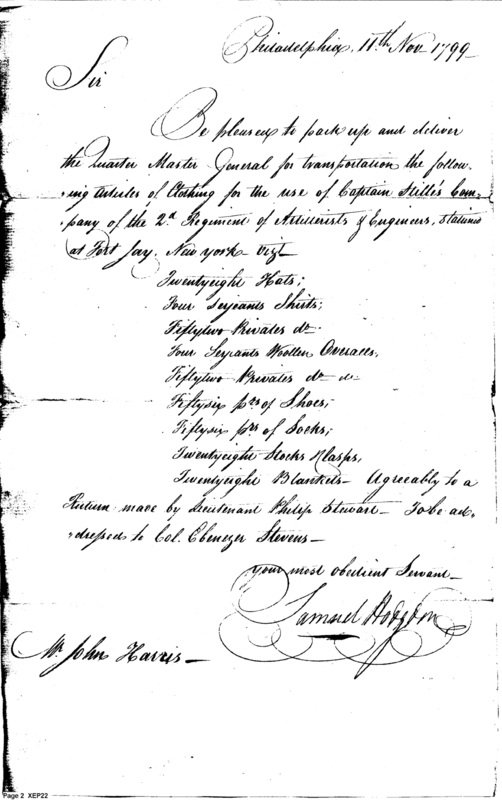 Philadelphia, 11th Nov 1799
Sir
Be pleased to pack up and deliver
the Quarter Master General for transportation the follow-
-ing articles of Clothing for the use of Captain Stille's Com-
-pany of the 2d Regiment of Artillerists & Engineers, stationed
at Fort Jay, New York - Vizt
Twentyeight Hats;
Four Serjeants Shirts;
Fiftytwo Privates do -
Four Serjeants Woollen Overalls,
Fiftytwo Privates do - do -
Fiftysix prs of Shoes;
Fiftysix prs of Socks;
Twentyeight Stocks & Clasps,
Twentyeight Blankets - Agreeably to a
Return made by Lieutenant Philip Stewart - To be ad-
-dressed to Col. Ebenezer Stevens -
your most obedient Servant -
Samuel Hodgdon
Mr. John Harris -
Page 2 XEP22